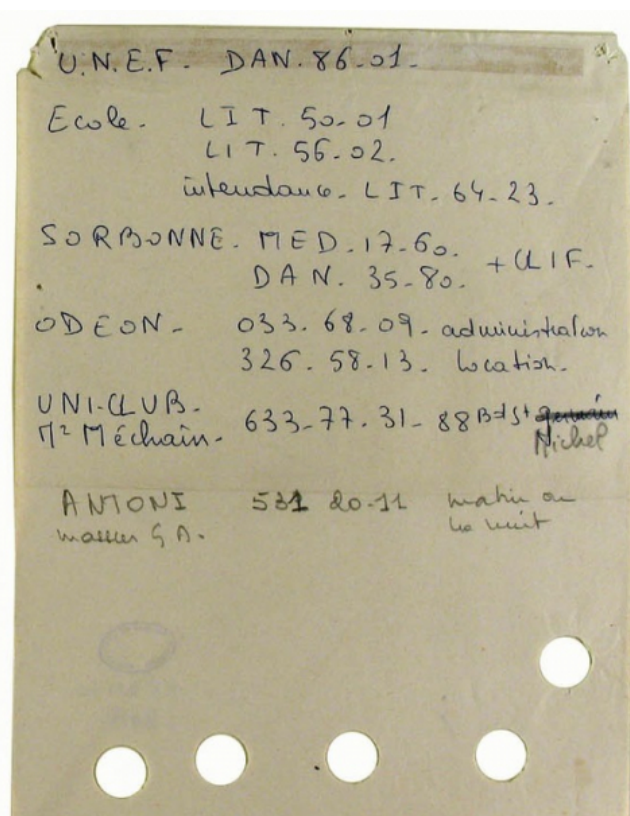 U.N.E.F. - DAN. 86-01-
Ecole. LIT. 50-01
LIT. 56-02.
intendance. LIT. 64-23.
SORBONNE. MED. 17-60.
DAN. 35-80. + CLIF.
ODEON - 033. 68-09- administration
326. 58-13. location.
UNI-CLUB. -
Mr Méchain. 633-77.31- 88 Bd St germain
Michel
ANTONI 531 20-11 matin ou
la nuit